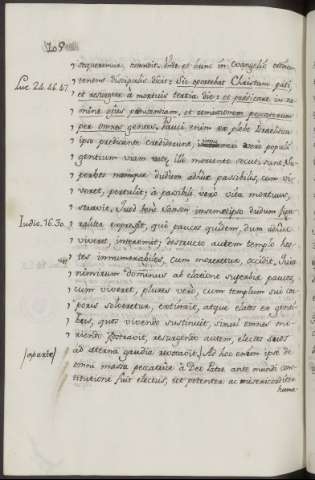 109
sequeremur, commovit. Unde et hinc in Evangelio
Luc. 24. 46. 47. tenens discipulis dicit: Sic oportebat Christum pati,
et resurgere à mortuis tertia die: et prædicare in no-
mine ejus pœnitentiam, et remissionem peccatorum
per omnes gentes. Pauci enim ex plebe Israelitica
ipso prædicante crediderunt, verò populi
gentium viam vitæ illo moriente secuti sunt. Su-
perbos namque dudum adhuc passibilis, cum vi-
veret, pertulit; à passibili verò vita mortuus,
stravit. Quod benè Samson dudum figu-
Iudic. 16. 30. raliter expressit, qui paucos quidem, dum adhuc
viveret, interemit; destructo autem templo hos-
tes innumerabiles, cum moreretur, occidit. Quia
nimirum Dominus ab elatione superbiæ paucos,
cum viveret, plures verò, cum templum sui cor-
poris solveretur, extinxit, atque elatos ex genti-
bus, quos vivendo sustinuit, simul omnes mo-
riendo stravit, resurgente autem, electos suos
ad æterna gaudia revocavit. Ad hoc enim ipse de
omni massa peccatrice à Deo Patre ante mundi cons-
titutione fuit electus, ut potenter ac misericorditer
huma-